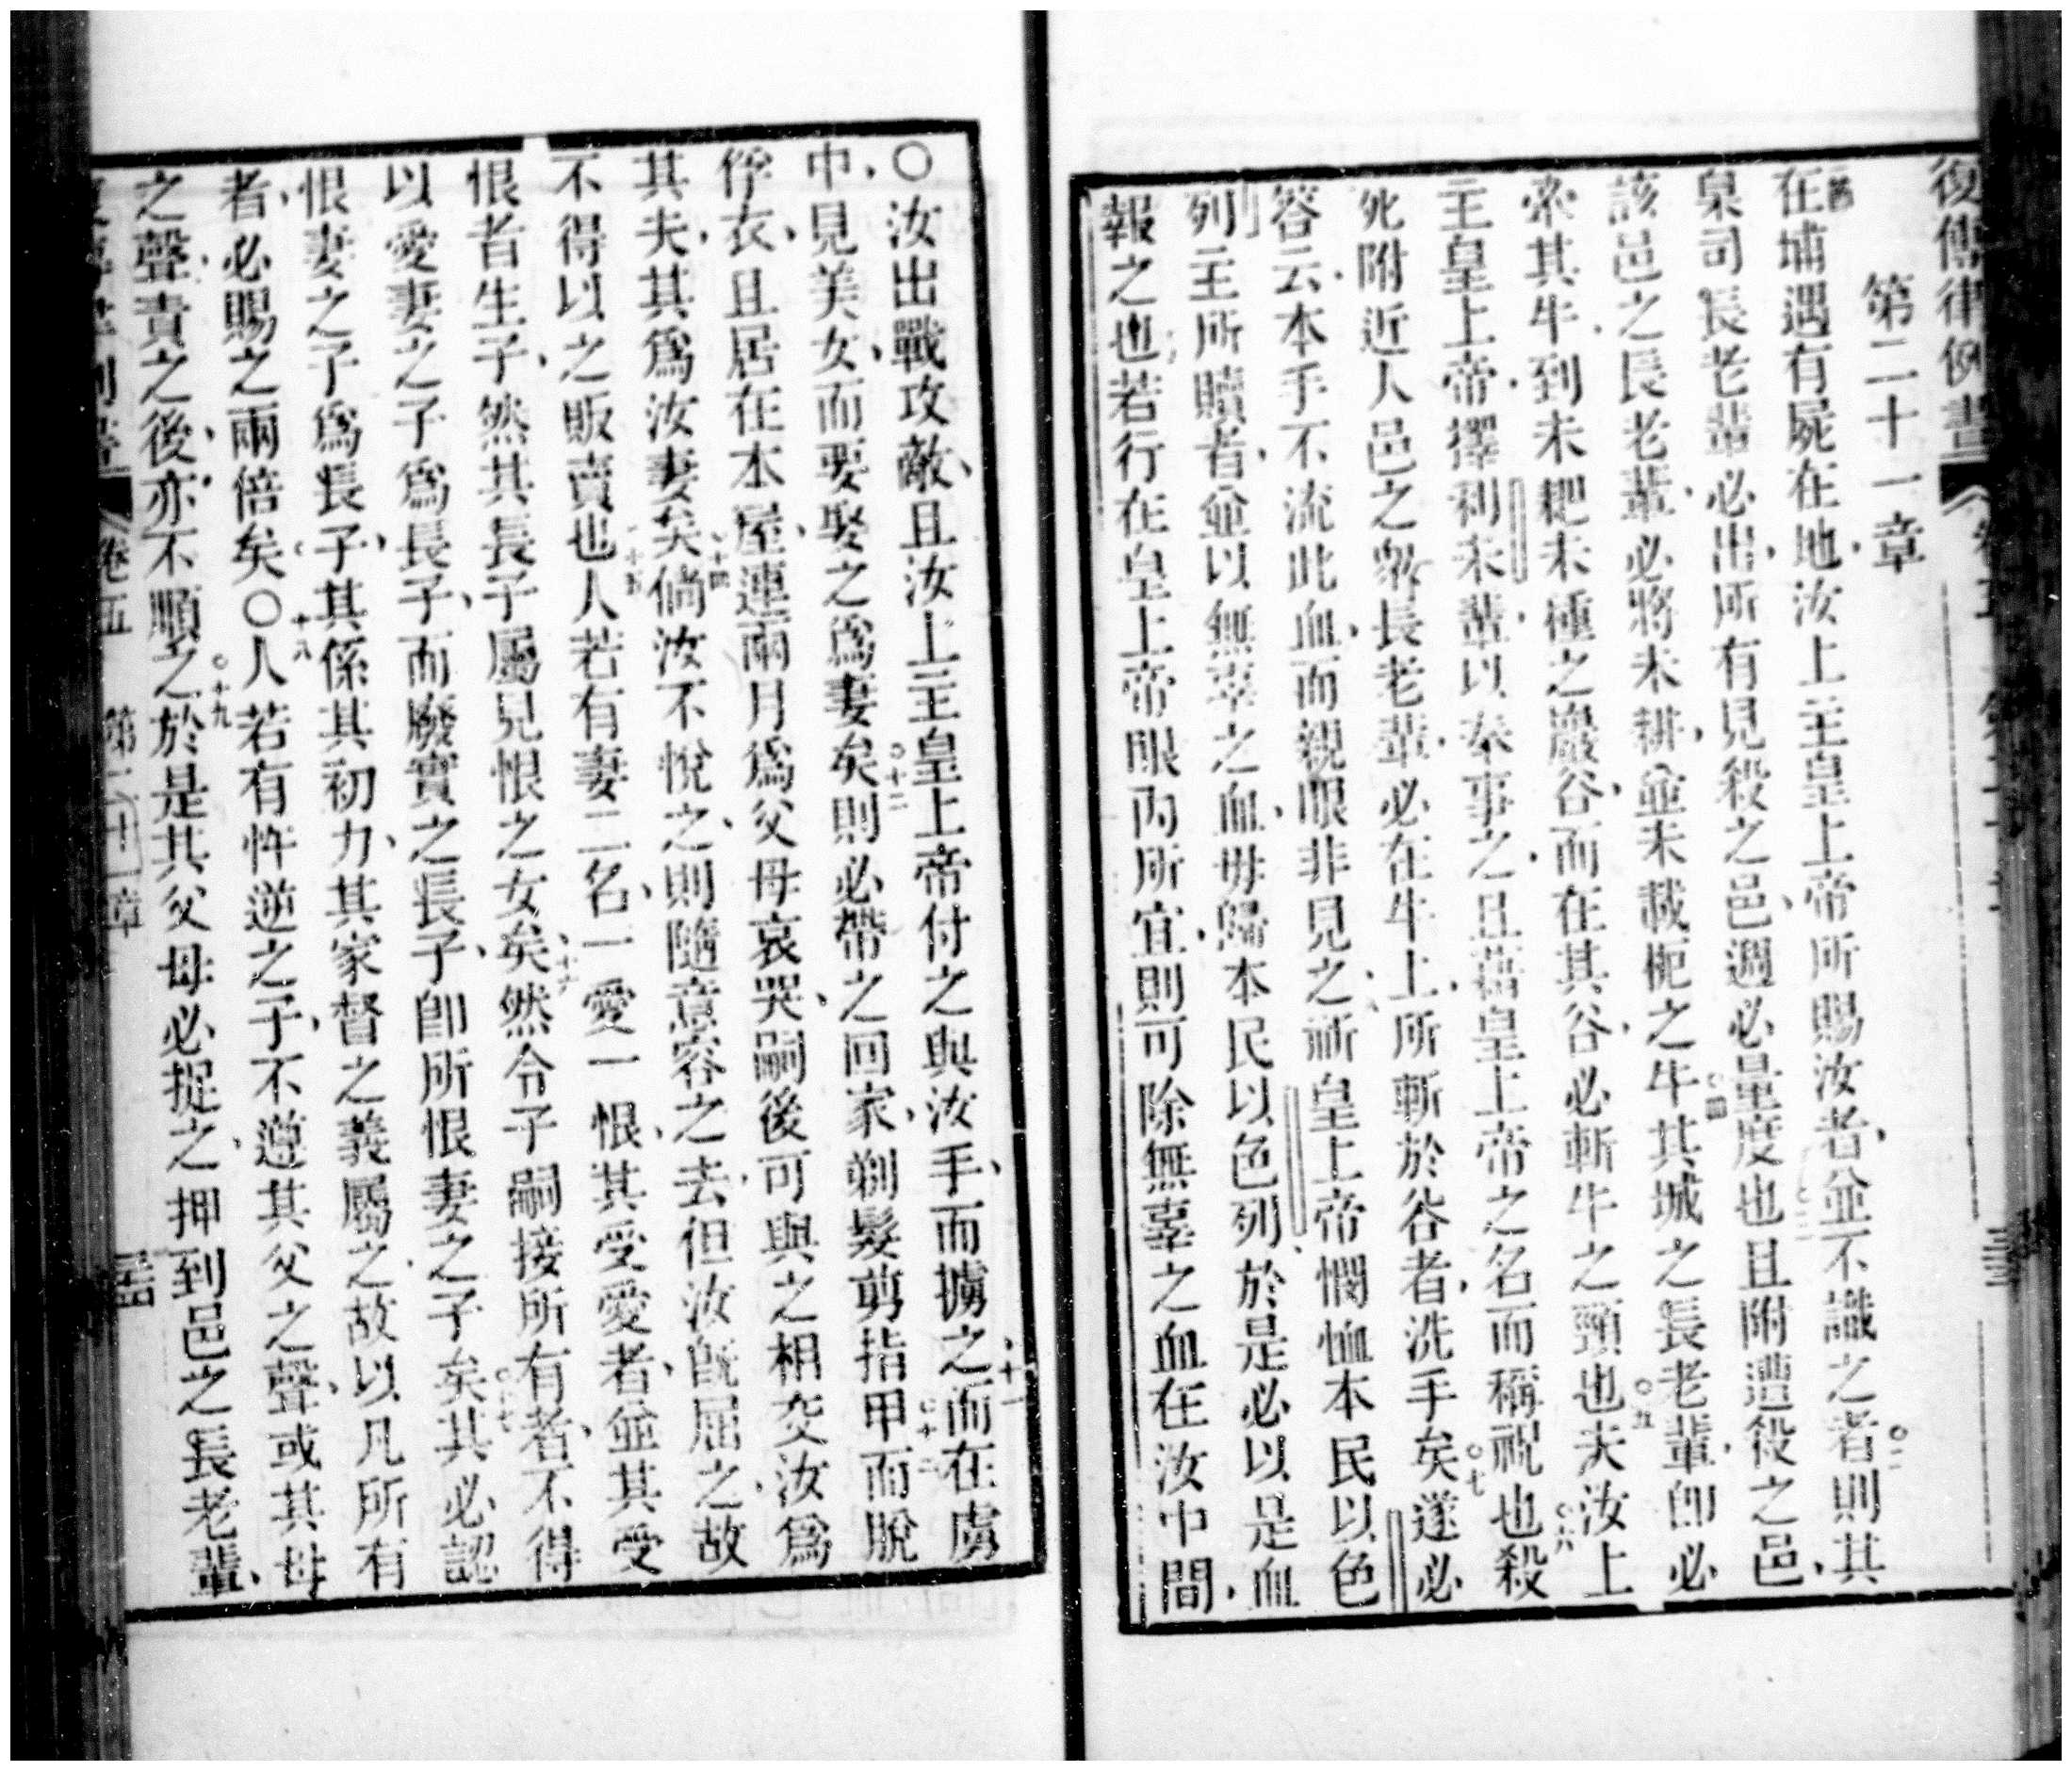 復傳律例書
第二十一章
在埔遇有屍在地、汝上主皇上帝所賜汝者、並不識之者、二則其
臬司長老輩必出、所有見殺之邑、週必量度也且附遭殺之邑、
該邑之長老輩、必將未耕、並未載軛之牛四其城之長老輩、卽必
牽其牛到未耙未種之巖谷、而在其谷、必斬牛之頸也五夫汝上
主皇上帝、擇利未輩、以奉事之、且藉皇上帝之名而稱祝也六殺
死附近人邑之眾長老輩、必在牛上、所斬於谷者、洗手矣七遂必
答云、本手不流此血、而親眼非見之、祈皇上帝憫恤本民以色
列主所贖者、並以無辜之血、毋歸本民以色列、於是必以是血
報之也若行在皇上帝眼內所宜、則可除無辜之血在汝中間、
〇汝出戰攻敵、且汝上主皇上帝付之與汝手、而擄之十一而在虜
中、見美女、而要娶之為妻矣十二則必帶之回家、剃髮剪指甲十三而脫
俘衣、且居在本屋、連兩月為父母哀哭、嗣後可與之相交汝為
其夫、其為汝妻矣十四倘汝不悅之、則隨意容之去、但汝旣屈之、故
不得以之販賣也十五人若有妻二名、一愛一恨、其受愛者、並其受
恨者生子、然其長子屬見恨之女矣十六然令子嗣接所有者、不得
以愛妻之子為長子、而廢實之長子、卽所恨妻之子矣十七其必認
恨妻之子為長子、其係其初力、其家督之義屬之、故以凡所有
者、必賜之兩倍矣〇十八人若有忤逆之子、不遵其父之聲、或其母
之聲、責之後、亦不順之十九於是其父母必捉之、押到邑之長老輩、
卷五 第二十一章